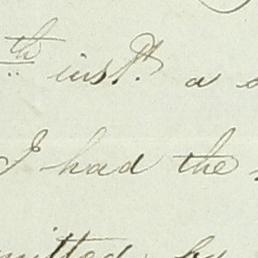 th inst. a
I had the
mitted by